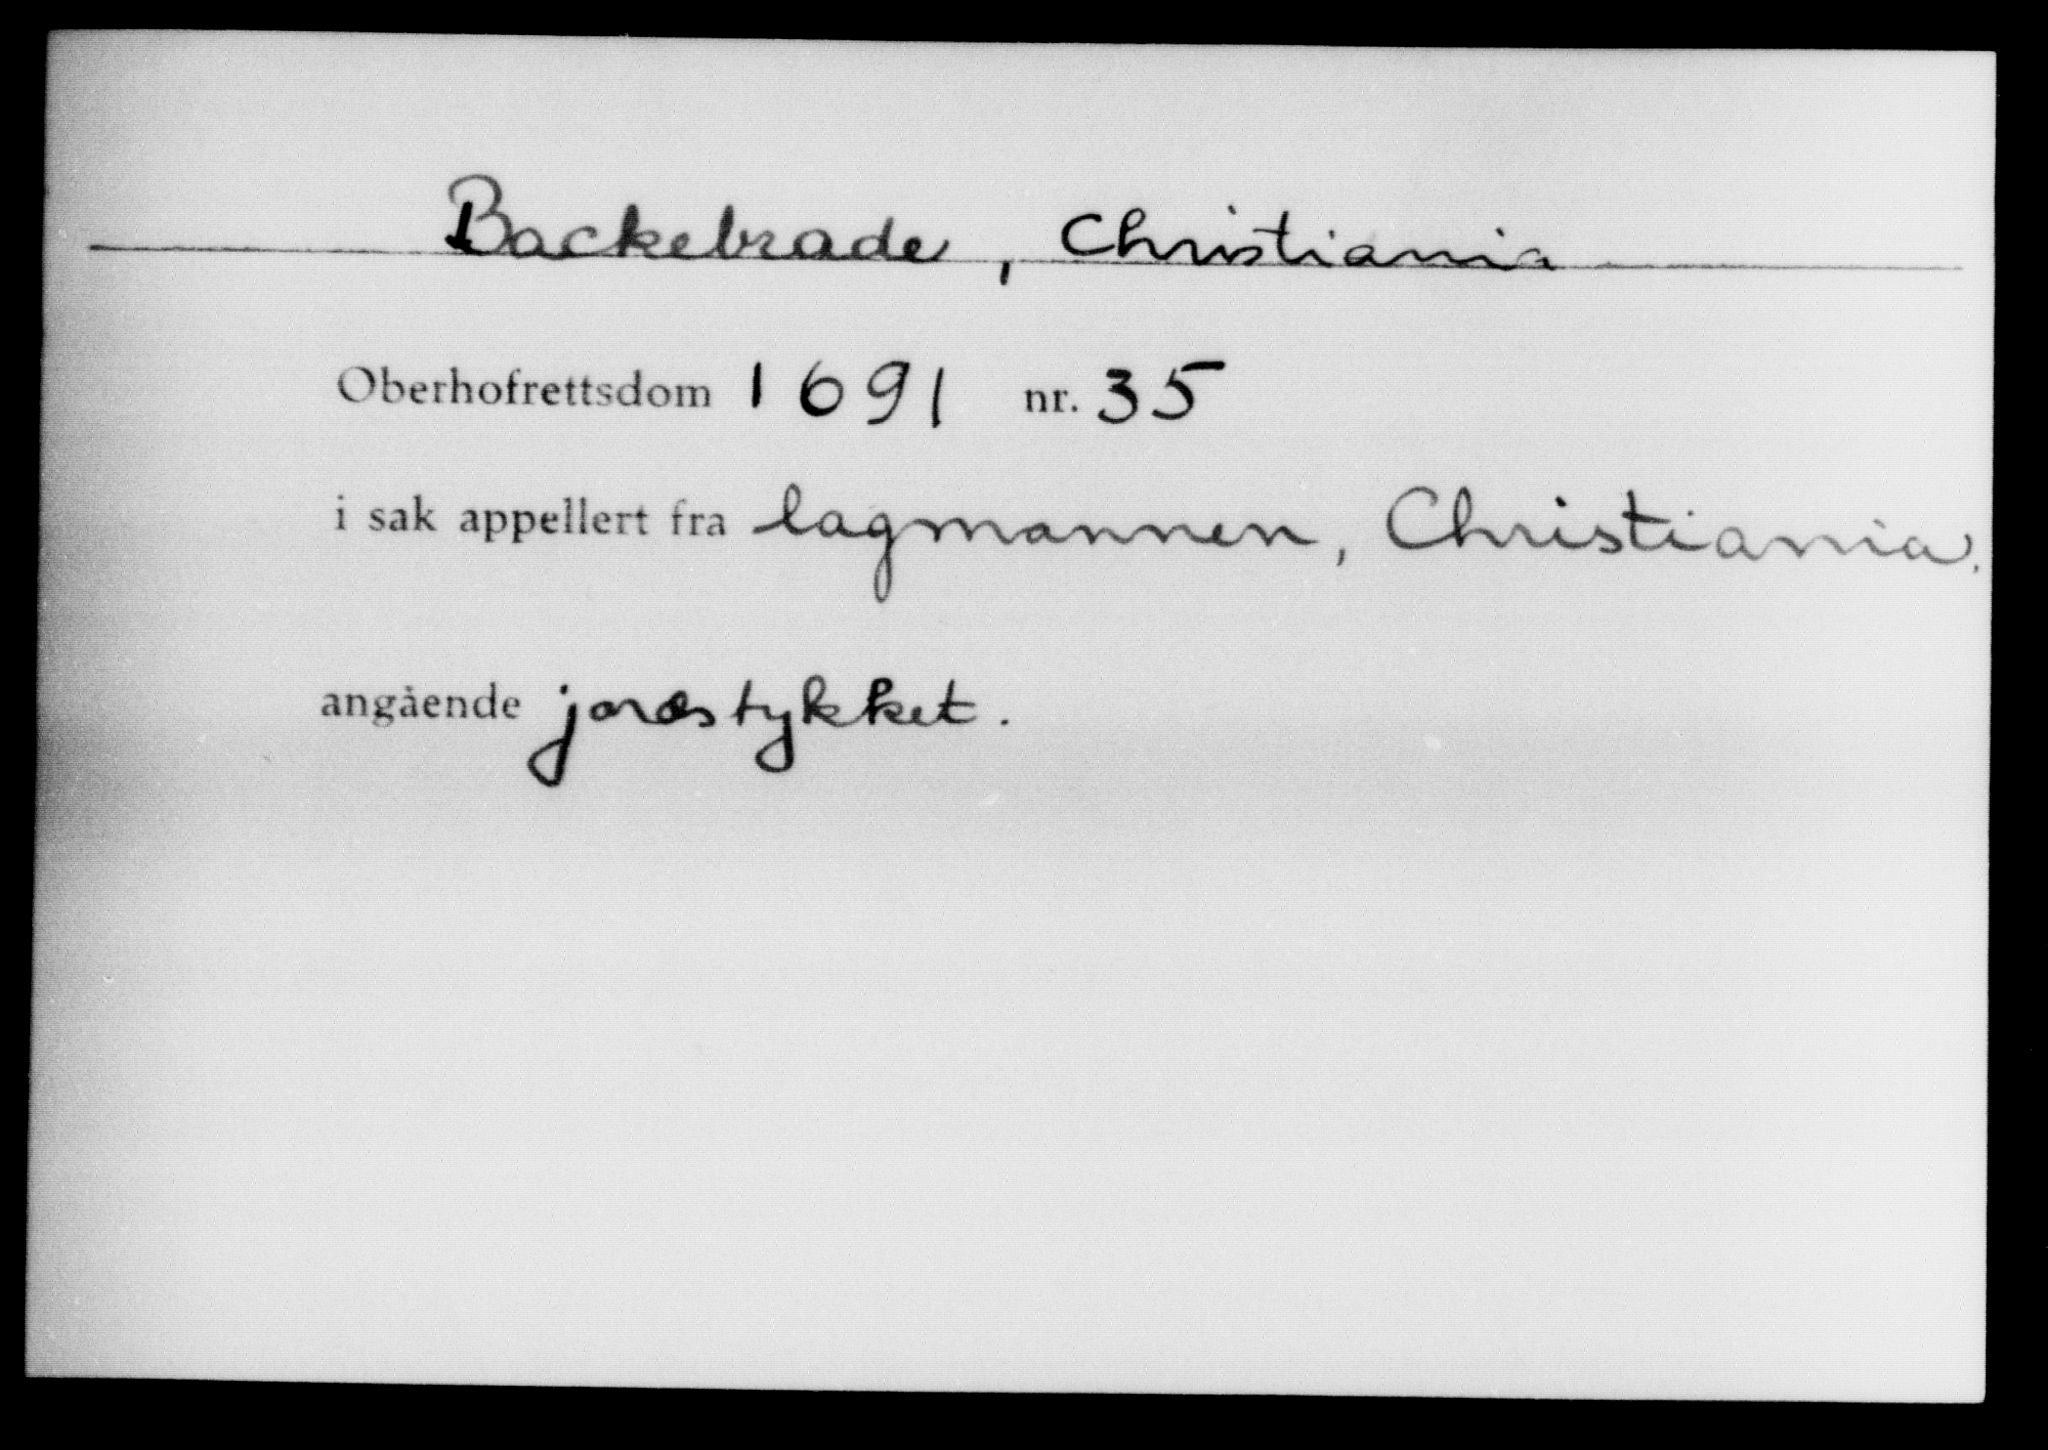 Backebrade, Christiania
Oberhofrettsdom 1691 nr. 35
i sak appellert fra lagmannen, Christiania.
angående jordstykket.